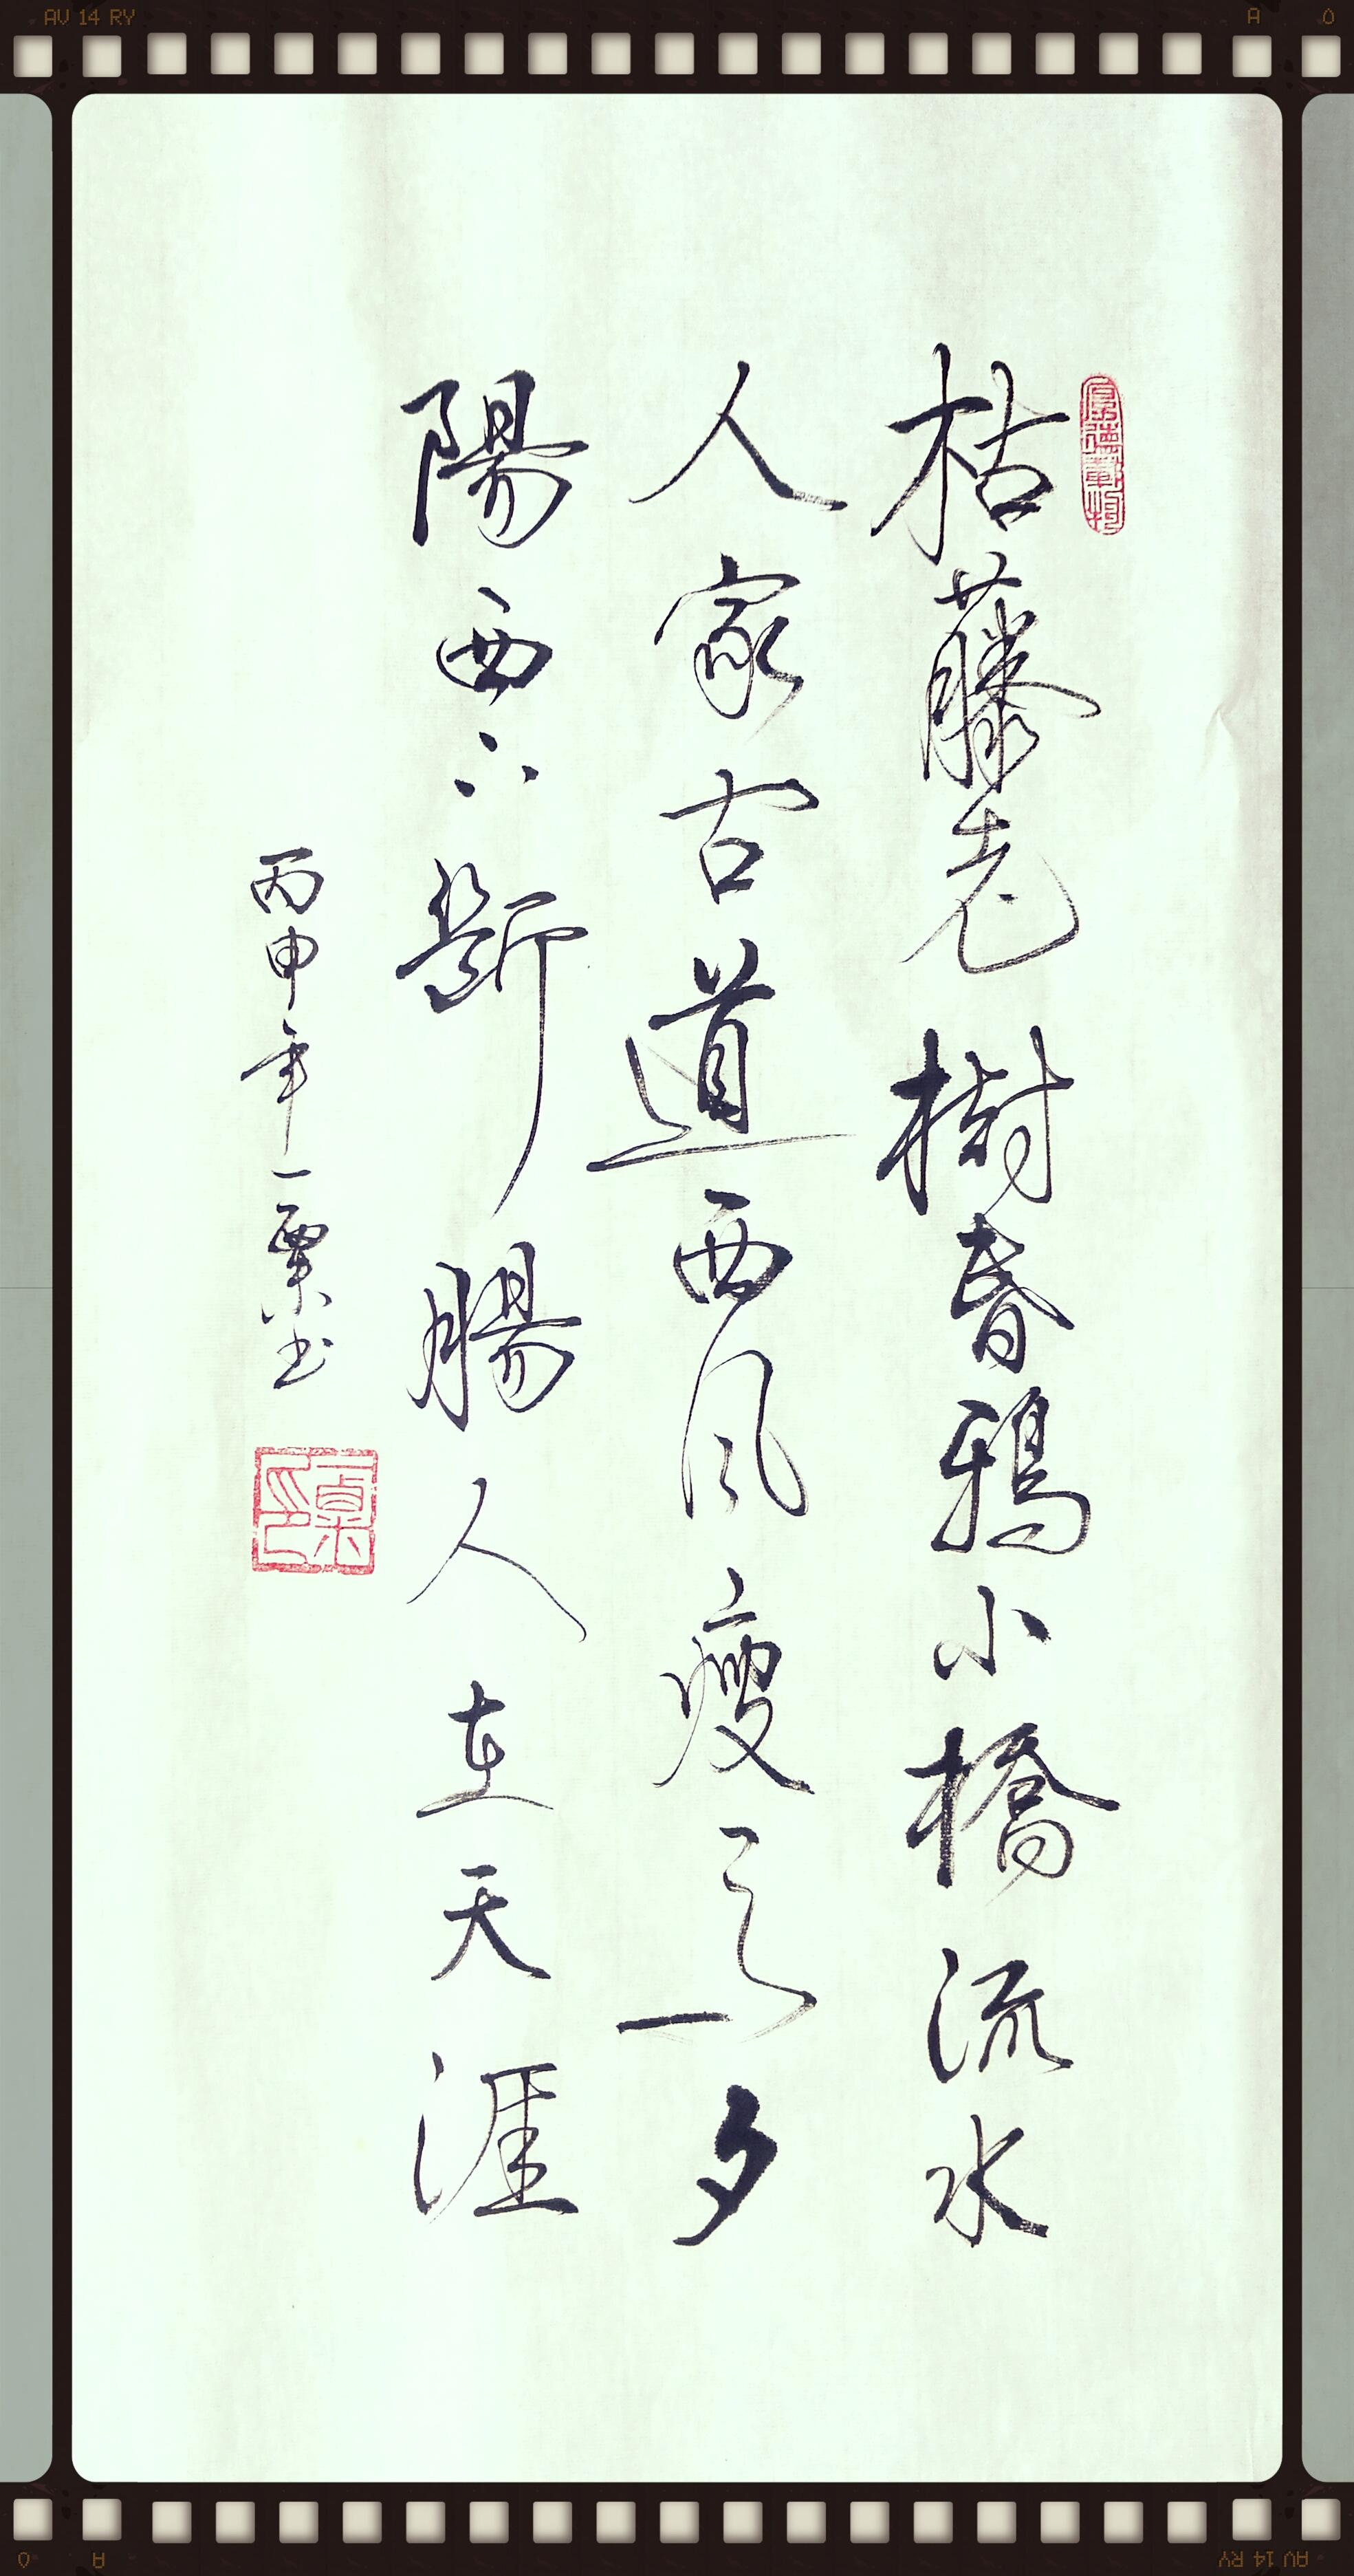 枯藤老樹昏鴉小橋流水
人家古道西風瘦馬夕
陽西下斷腸人在天涯
丙申年一粟书
厚德載物
一粟印
AV 14 RY
A
0
0
A
AV 14 RY